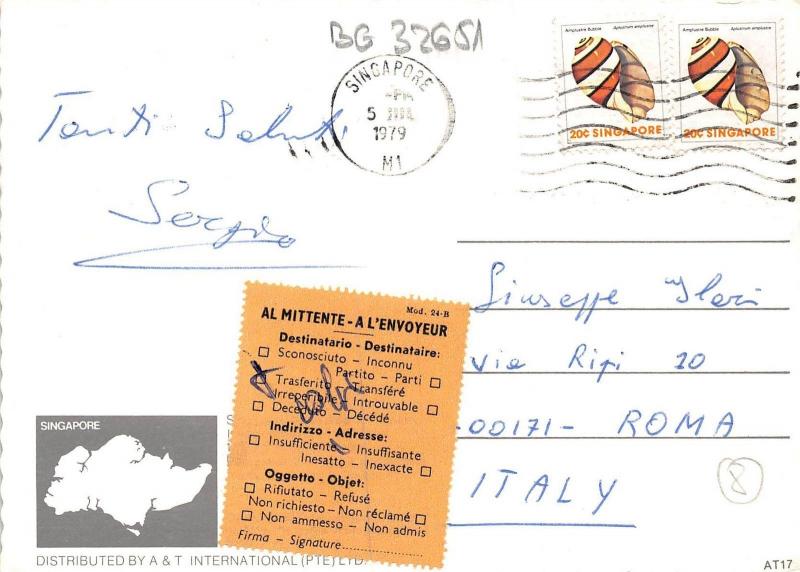 BG 32651
SINGAPORE
PM
5 JUL
1979
M1
Amplustre Bubble Aplustrum amplustre
20c SINGAPORE
Amplustre Bubble Aplustrum amplustre
20c SINGAPORE
Tanti Saluti
Sergio
Giuseppe Ilari
Via Ripi 20
-00171- ROMA
ITALY
8
Mod. 24-B
AL MITTENTE - A L'ENVOYEUR
Destinatario - Destinataire:
Sconosciuto - Inconnu
Partito - Parti
Trasferito - Transféré
Irreperibile - Introuvable
Deceduto - Décédé
Indirizzo - Adresse:
Insufficiente - Insuffisante
Inesatto - Inexacte
Oggetto - Objet:
Rifiutato - Refusé
Non richiesto - Non réclamé
Non ammesso - Non admis
Firma - Signature
SINGAPORE
DISTRIBUTED BY A & T INTERNATIONAL (PTE) LTD.
AT17